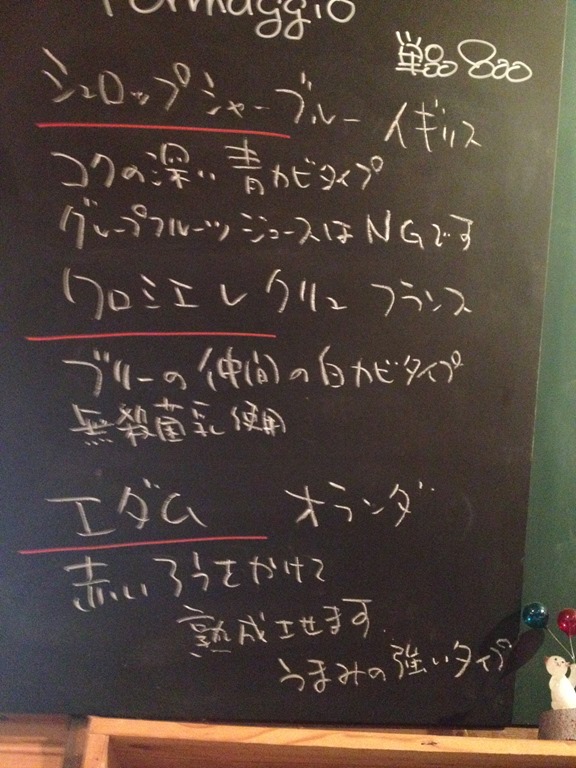 Formaggio
単品800
シュロップシャーブルー イギリス
コクの深い青カビタイプ
グレープフルーツジュースはNGです
クロミエ レ クリュ フランス
ブリーの仲間の白カビタイプ
無殺菌乳使用
エダム オランダ
赤いろうをかけて
熟成させます
うまみの強いタイプ